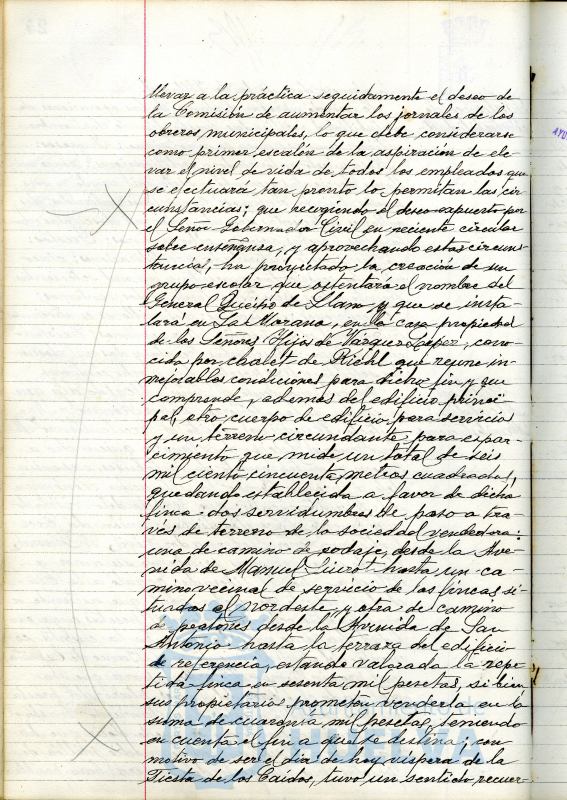 llevar a la práctica seguidamente el deseo de
la Comisión de aumentar los jornales de los
obreros municipales, lo que debe considerarse
como primer escalón de la aspiración de ele
var el nivel de vida de todos los empleados que
se efectuará tan pronto lo permitan las cir
cunstancias; que recogiendo el deseo expuesto por
el Señor Gobernador Civil en reciente circular
sobre enseñanza, y aprovechando estas circuns-
tancias, ha proyectado la creación de un
grupo escolar que ostentará el nombre del
General Queipo de Llano y que se insta-
lará en La Morana, en la casa propiedad
de los Señores Hijos de Vázquez López, cono-
cida por chalet de Riehl que reune in-
mejorables condiciones para dicho fin y que
comprende, además del edificio princi-
pal, otro cuerpo de edificio para servicios
y un terreno circundante para espar-
cimiento que mide un total de seis
mil ciento cincuenta metros cuadrados,
quedando establecida a favor de dicha
finca dos servidumbres de paso a tra-
vés de terreno de la sociedad vendedora:
una de camino de rodaje, desde la Ave-
nida de Manuel Siurot hasta un ca-
mino vecinal de servicio de las fincas si-
tuadas al nordeste, y otra de camino
de peatones desde la Avenida de San
Antonio hasta la terraza del edificio
de referencia, estando valorada la repe-
tida finca en sesenta mil pesetas, si bien
sus propietarios prometen venderla en la
suma de cuarenta mil pesetas, teniendo
en cuenta el fin a que se destina; con
motivo de ser el día de hoy víspera de la
Fiesta de los Caídos, tuvo un sentido recuer-
Ayuntamiento de
HUELVA